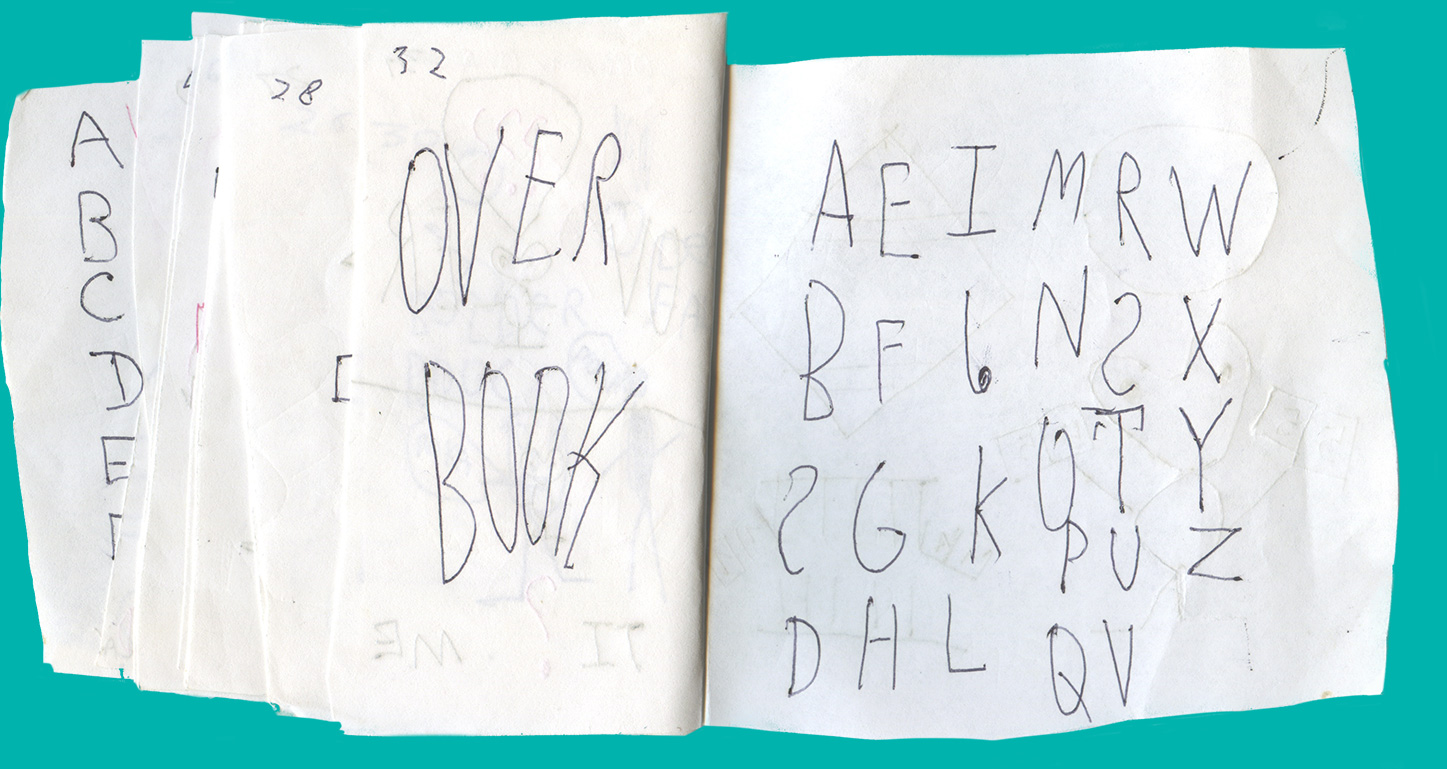 A
B
C
D
E
28
I
32
OVER
BOOK
A E I M R W
B F J N S X
S G K O T Y
P U Z
D H L Q V